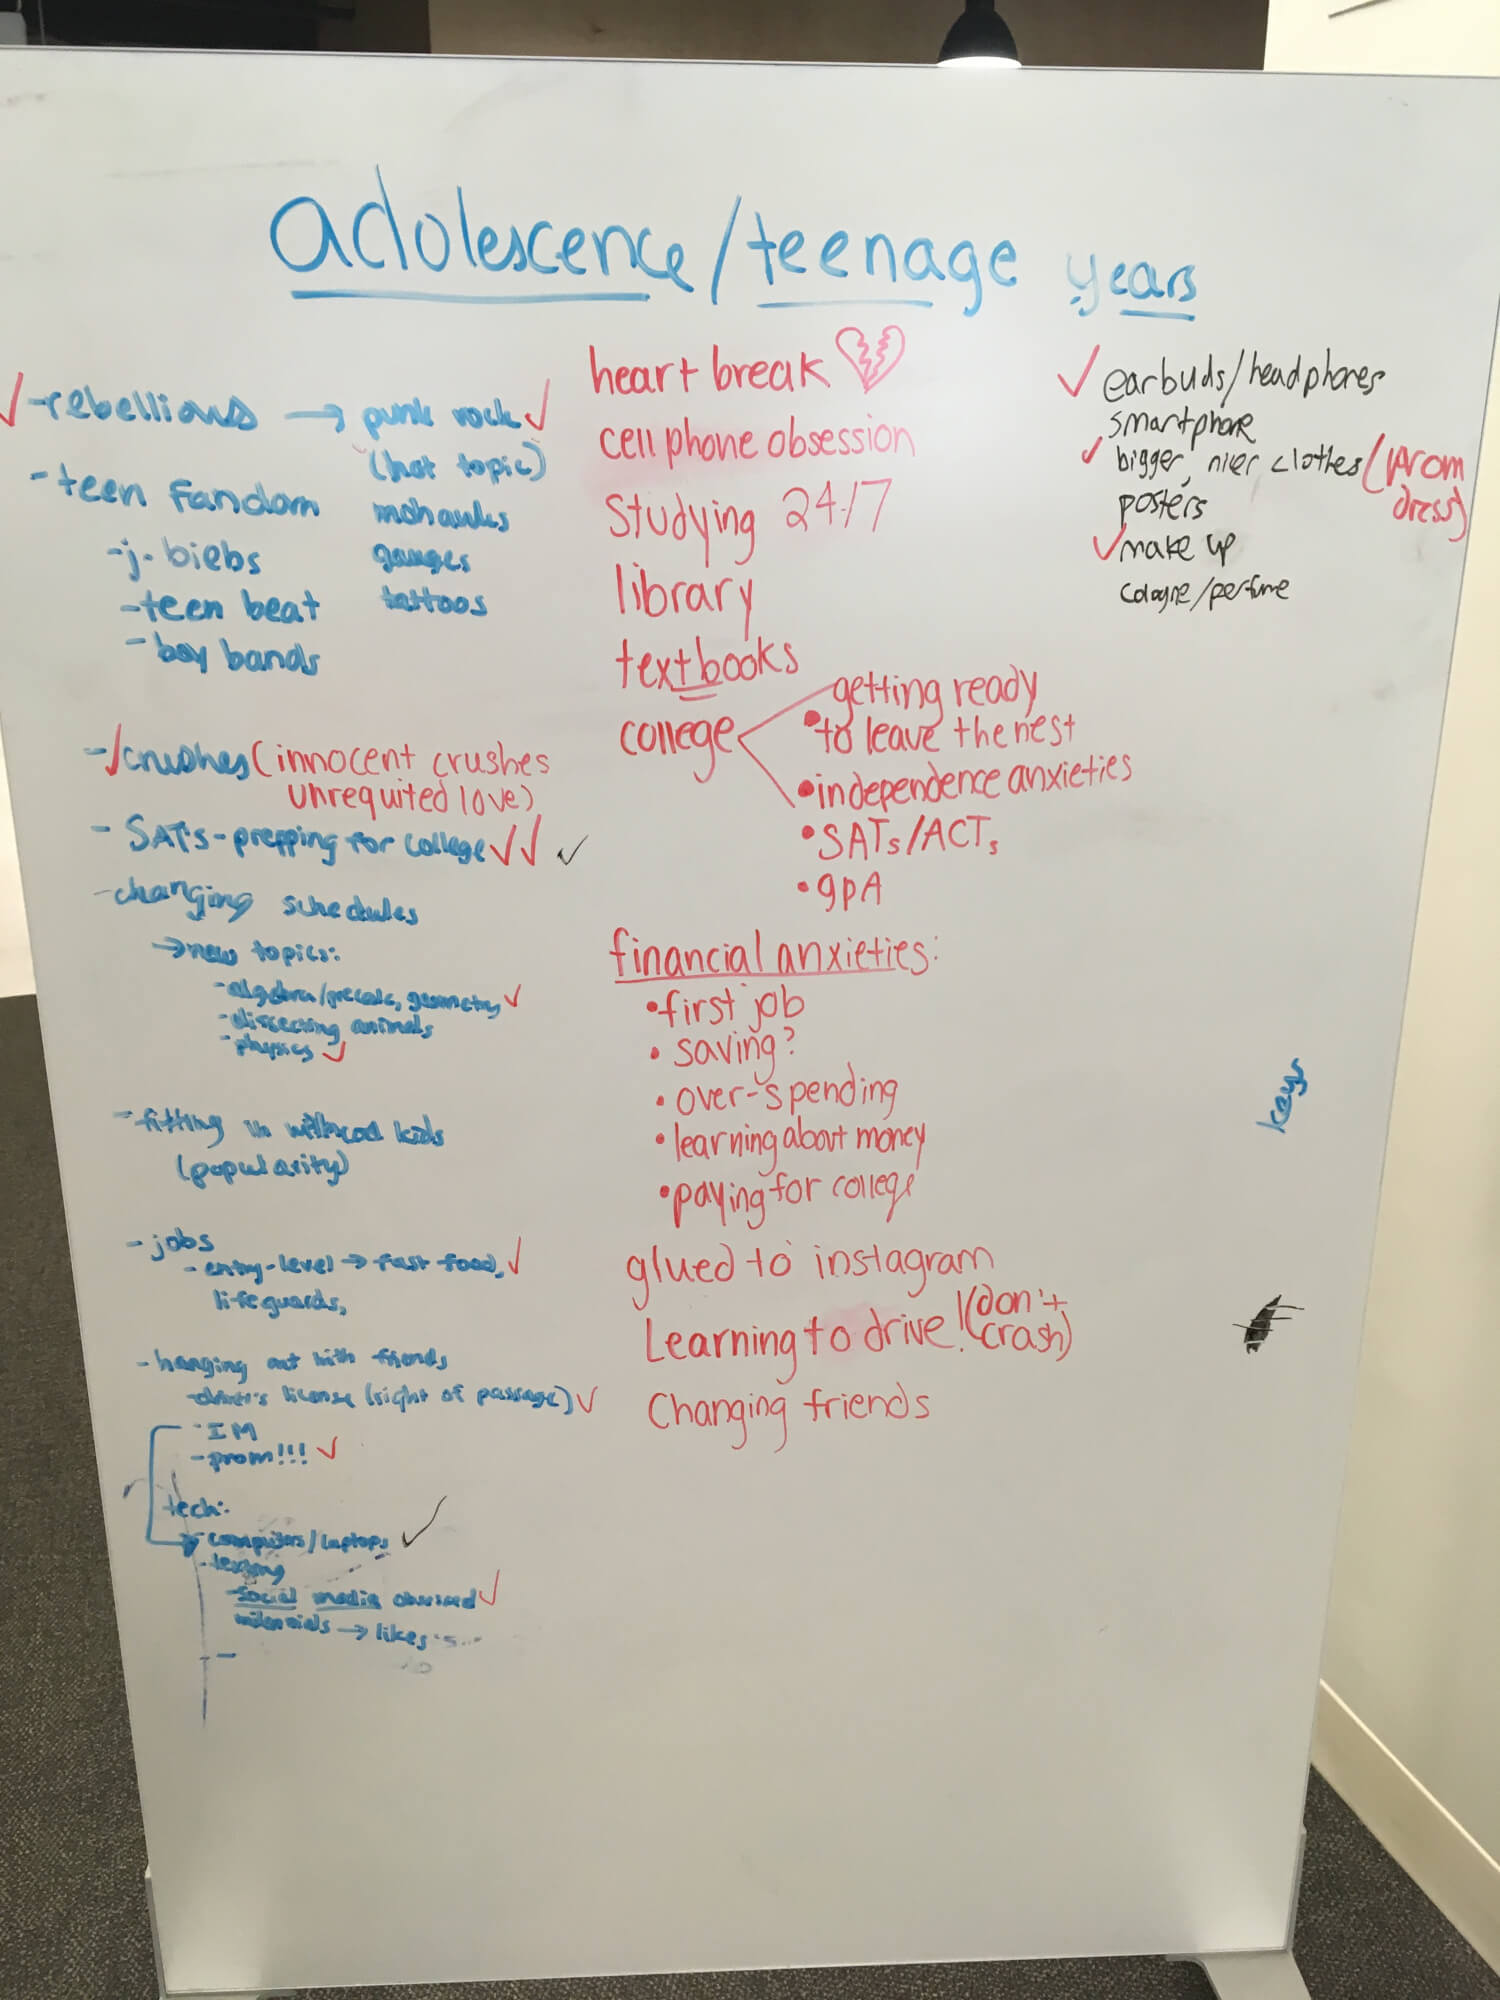 adolescence/teenage years
-rebellious → punk rock
(hot topic)
mohawks
gauges
tattoos
-teen fandom
-j. biebs
-teen beat
-boy bands
-crushes (innocent crushes
unrequited love)
- SAT's - prepping for college
-changing schedules
→new topics:
-algebra/precalc, geometry
-dissecting animals
-physics
-fitting in with cool kids
(popularity)
-jobs
-entry-level → fast food,
lifeguards,
-hanging out with friends
-driver's license (right of passage)
-IM
-prom!!!
tech:
computers/laptops
-texting
-social media obsessed
millennials → likes
heart break
cell phone obsession
Studying 24/7
library
textbooks
college
getting ready
•to leave the nest
•independence anxieties
•SATs/ACTs
•gpA
financial anxieties:
•first job
•saving?
•over-spending
•learning about money
•paying for college
glued to instagram
Learning to drive! (don't
crash)
Changing friends
earbuds/headphones
smartphone
bigger, nicer clothes (prom
dress)
posters
make up
cologne/perfume
keys